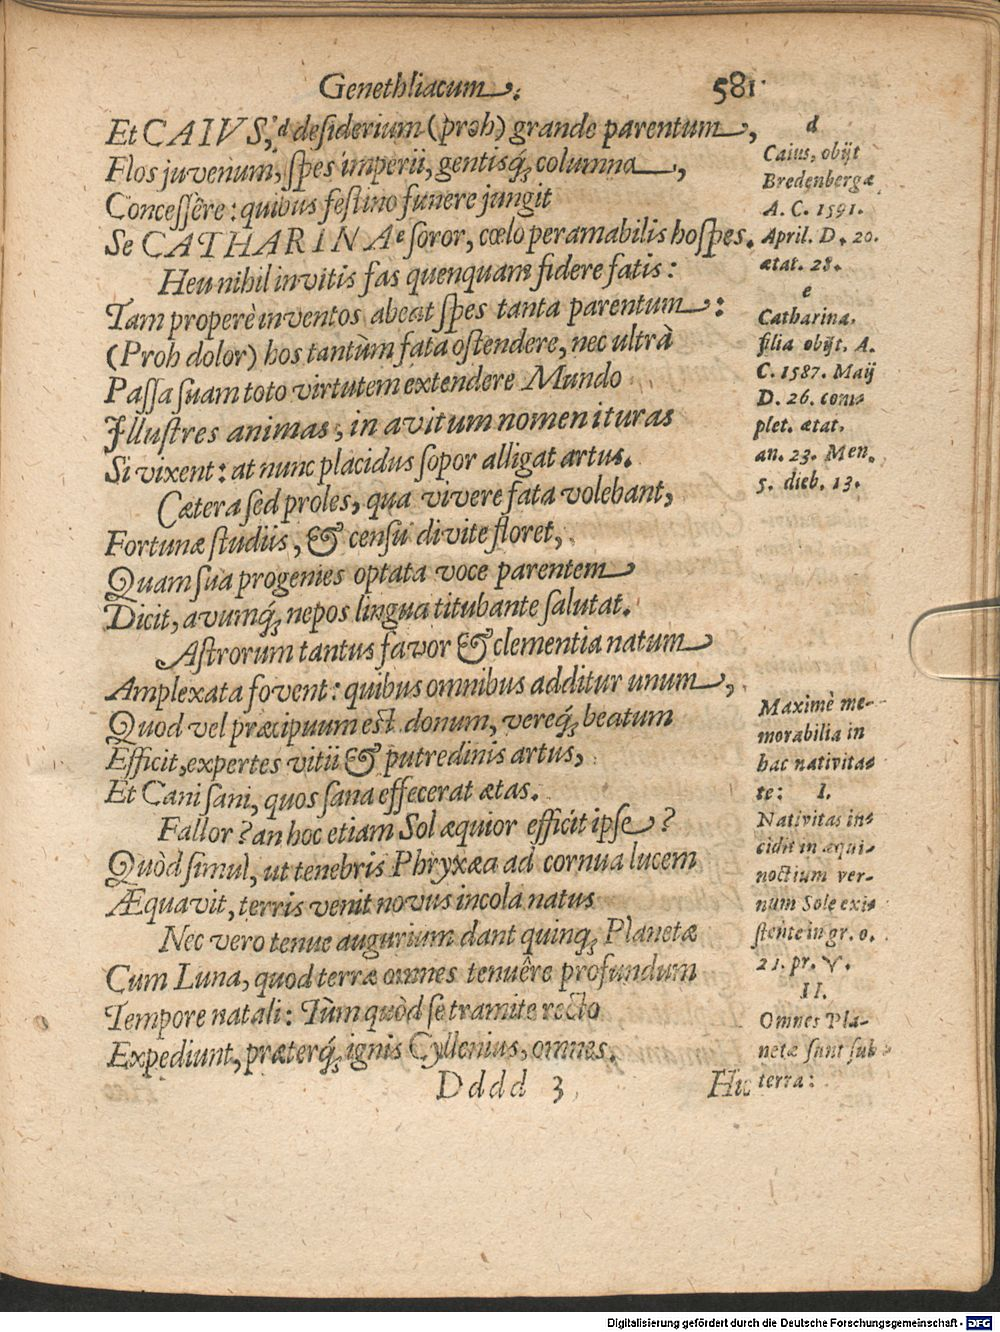 Genethliacum. 581
Et CAIVS,ᵈ desiderium (proh) grande parentum,
Flos juvenum, spes imperii, gentisq́; columna,
Concessêre: quibus festino funere jungit
Se CATHARINAᵉ soror, cœlo peramabilis hospes.
Heu nihil invitis fas quenquam fidere fatis:
Tam properè inventos abeat spes tanta parentum:
(Proh dolor) hos tantùm fata ostendere, nec ultrà
Passa suam toto virtutem extendere Mundo
Illustres animas, in avitum nomen ituras
Si vixent: at nunc placidus sopor alligat artus.
Cætera sed proles, qua vivere fata volebant,
Fortunæ studiis, & censu divite floret,
Quam sua progenies optata voce parentem
Dicit, avumq́; nepos lingua titubante salutat.
Astrorum tantus favor & clementia natum
Amplexata fovent: quibus omnibus additur unum,
Quod vel præcipuum est donum, vereq́; beatum
Efficit, expertes vitii & putredinis artus,
Et Cani sani, quos sana effecerat ætas.
Fallor? an hoc etiam Sol æquior efficit ipse?
Quòd simul, ut tenebris Phryxæa ad cornua lucem
Æquavit, terris venit novus incola natus
Nec vero tenue augurium dant quinq; Planetæ
Cum Luna, quod terræ omnes tenuêre profundum
Tempore natali: Tùm quòd se tramite recto
Expediunt, præterq́; ignis Cyllenius, omnes.
Dddd 3
Hic
d
Caius, obijt
Bredenbergæ
A. C. 1591.
April. D. 20.
ætat. 28.
e
Catharina,
filia obijt. A.
C. 1587. Maij
D. 26. com-
plet. ætat.
an. 23. Men.
5. dieb. 13.
Maximè me-
morabilia in
hac nativita-
te: I.
Nativitas in-
cidit in æqui-
noctium ver-
num Sole exi-
stente in gr. 0.
21. pr. ♈.
II.
Omnes Pla-
netæ sunt sub
terra:
Digitalisierung gefördert durch die Deutsche Forschungsgemeinschaft - DFG